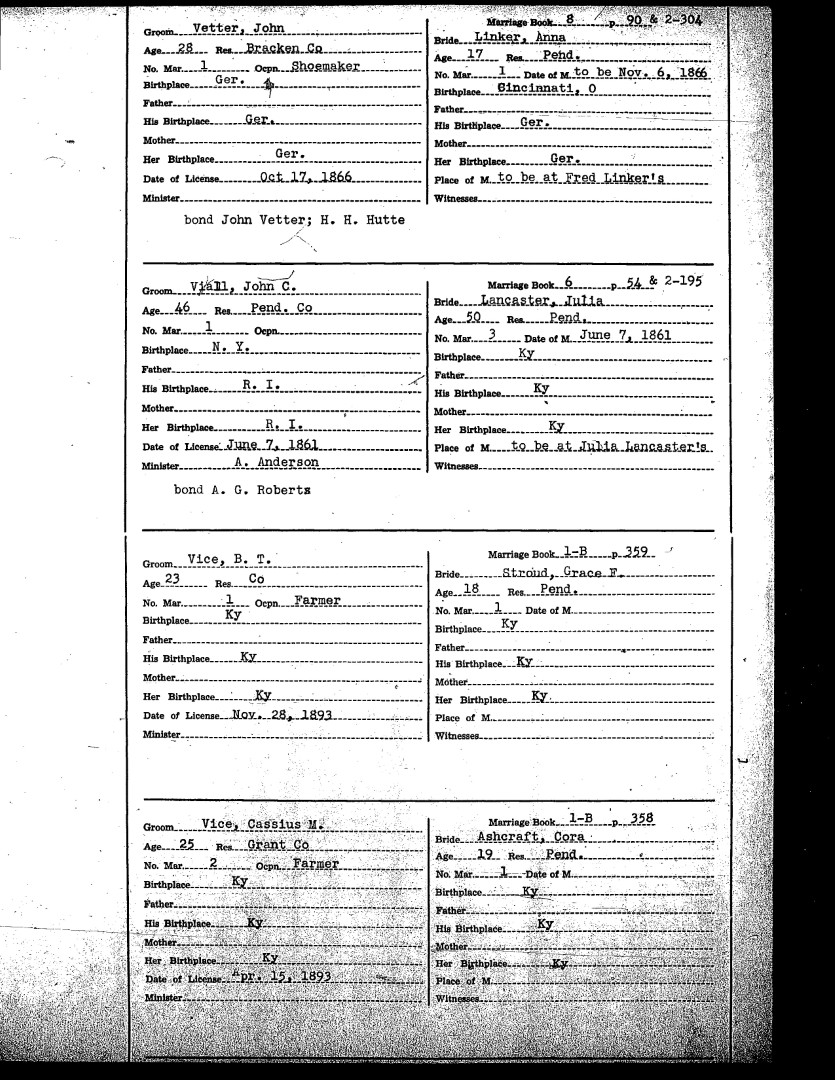 Groom Vetter, John
Age 28 Res Bracken Co
No. Mar. 1 Ocpn. Shoemaker
Birthplace Ger.
Father
His Birthplace Ger.
Mother
Her Birthplace Ger.
Date of License Oct 17, 1866
Minister
bond John Vetter; H. H. Hutte
Marriage Book 8 p. 90 & 2-304
Bride Linker, Anna
Age 17 Res. Pend.
No. Mar. 1 Date of M. to be Nov. 6, 1866
Birthplace Cincinnati, O
Father
His Birthplace Ger.
Mother
Her Birthplace Ger.
Place of M. to be at Fred Linker's
Witnesses
Groom Viall, John C.
Age 46 Res. Pend. Co
No. Mar. 1 Ocpn.
Birthplace N. Y.
Father
His Birthplace R. I.
Mother
Her Birthplace R. I.
Date of License June 7, 1861
Minister A. Anderson
bond A. G. Roberts
Marriage Book 6 p. 54 & 2-195
Bride Lancaster, Julia
Age 50 Res. Pend.
No. Mar. 3 Date of M. June 7, 1861
Birthplace Ky
Father
His Birthplace Ky
Mother
Her Birthplace Ky
Place of M. to be at Julia Lancaster's
Witnesses
Groom Vice, B. T.
Age 23 Res. Co
No. Mar. 1 Ocpn. Farmer
Birthplace Ky
Father
His Birthplace Ky
Mother
Her Birthplace Ky
Date of License Nov. 28, 1893
Minister
Marriage Book 1-B p. 359
Bride Stroud, Grace F.
Age 18 Res. Pend.
No. Mar. 1 Date of M.
Birthplace Ky
Father
His Birthplace Ky
Mother
Her Birthplace Ky
Place of M.
Witnesses
Groom Vice, Cassius M.
Age 25 Res. Grant Co
No. Mar. 2 Ocpn. Farmer
Birthplace Ky
Father
His Birthplace Ky
Mother
Her Birthplace Ky
Date of License Apr. 15, 1893
Minister
Marriage Book 1-B p. 358
Bride Ashcraft, Cora
Age 19 Res. Pend.
No. Mar. 1 Date of M.
Birthplace Ky
Father
His Birthplace Ky
Mother
Her Birthplace Ky
Place of M.
Witnesses